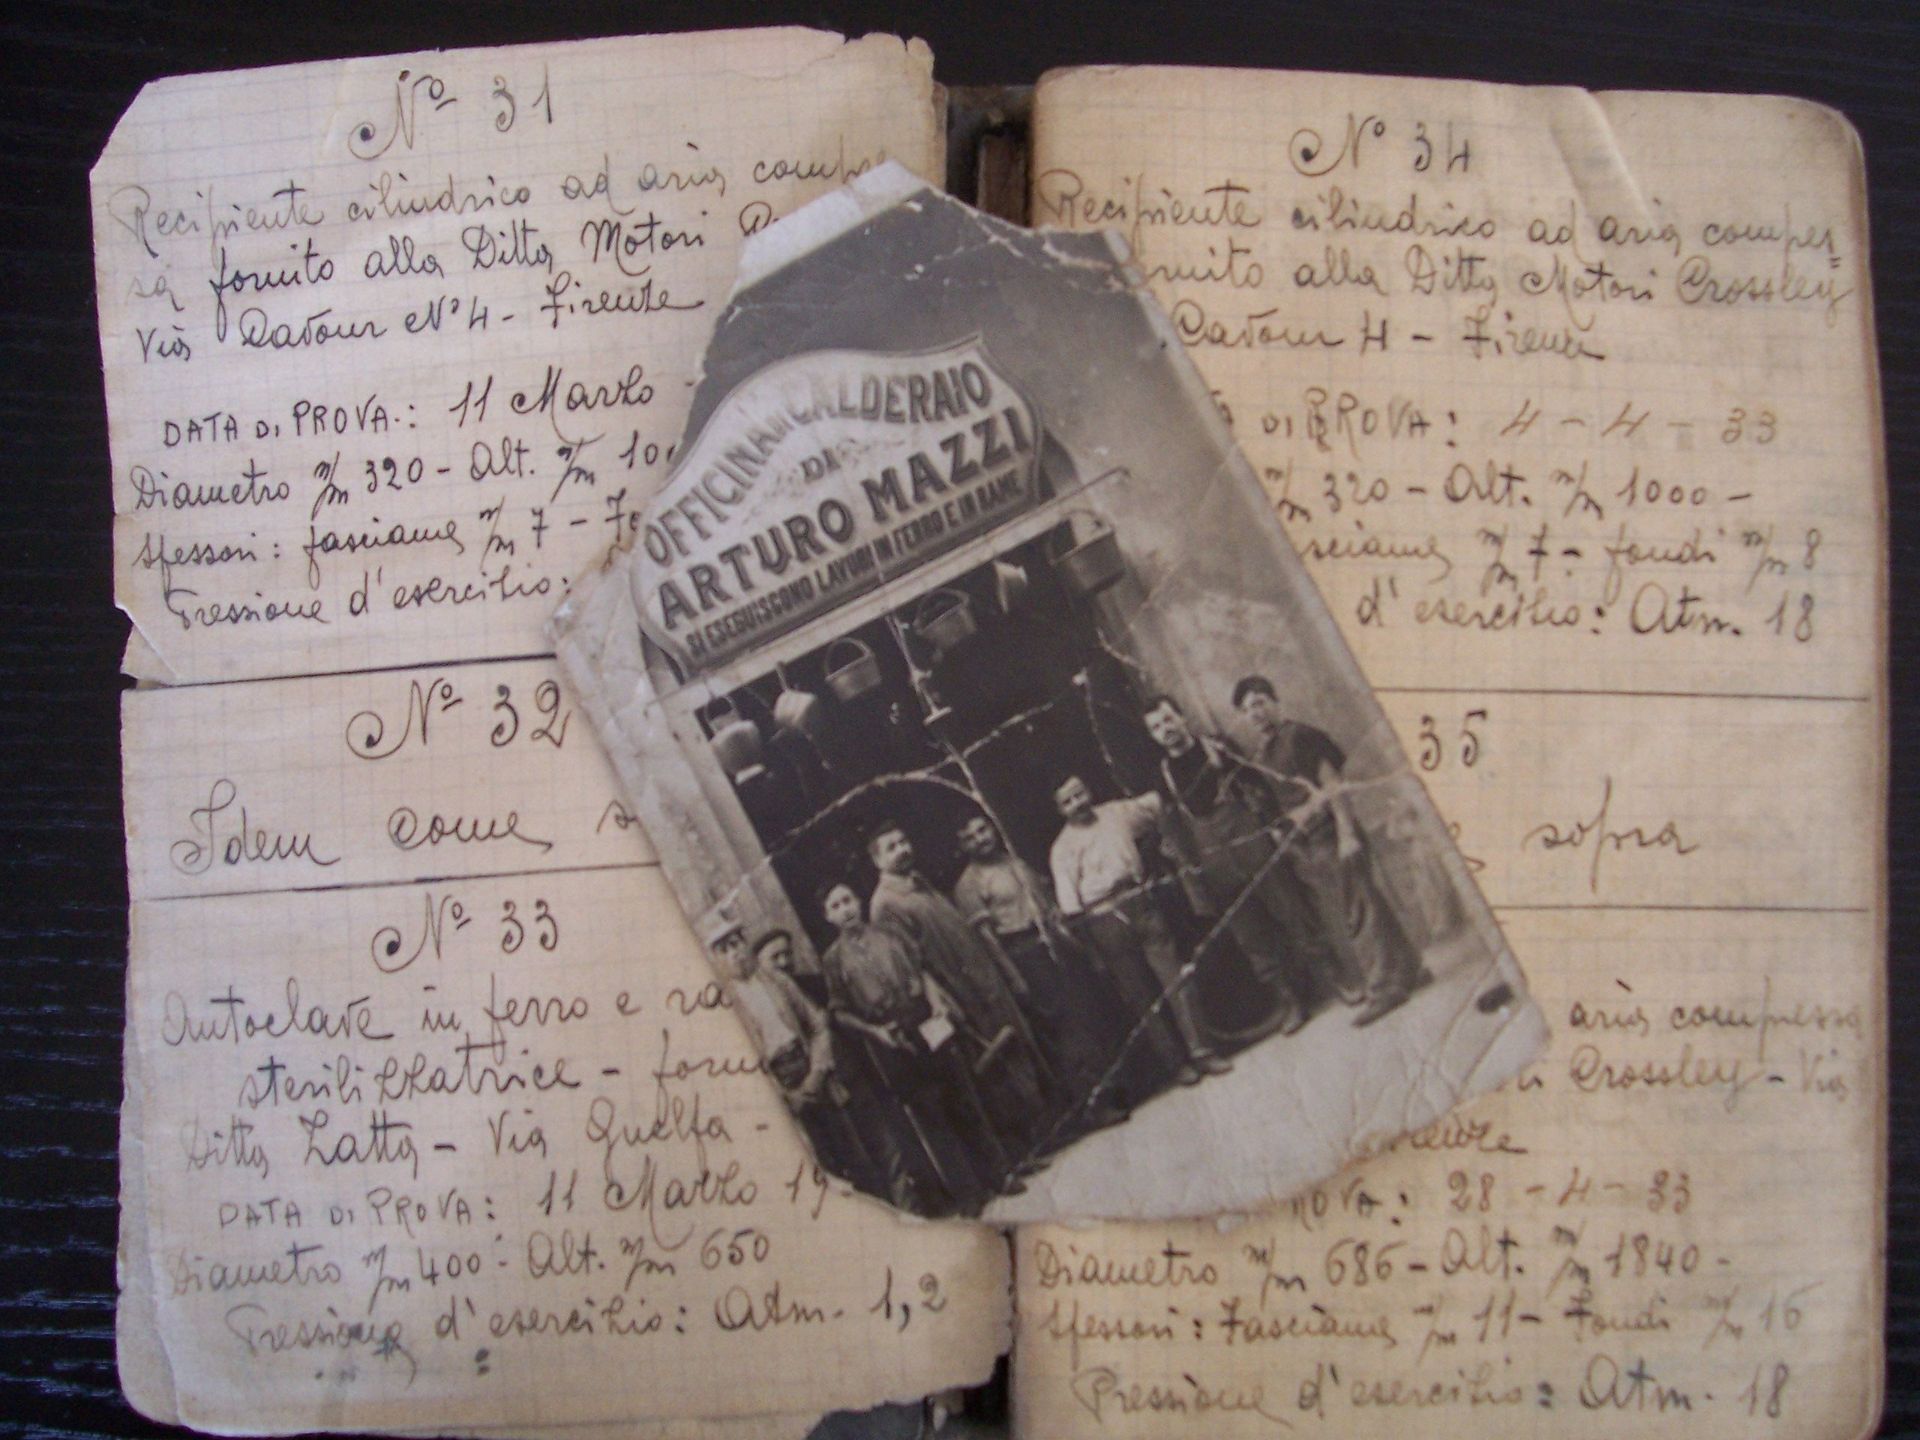 Nº 31
Recipiente cilindrico ad aria compre
sa fornito alla Ditta Motori
Via Cavour Nº 4 - Firenze
DATA DI PROVA: 11 Marzo -
Diametro m/m 320 - Alt. m/m 10
Spessori: fasciame m/m 7 -
Pressione d'esercizio:
Nº 32
Idem come s
Nº 33
Autoclave in ferro e ra
sterilizzatrice - forni
Ditta Zatta - Via Guelfa -
DATA DI PROVA: 11 Marzo 19
Diametro m/m 400 - Alt. m/m 650
Pressione d'esercizio: Atm. 1,2
OFFICINA IN CALDERAIO
DI
ARTURO MAZZI
SI ESEGUISCONO LAVORI IN FERRO E IN RAME
Nº 34
Recipiente cilindrico ad aria compres=
ornito alla Ditta Motori Crossley
Cavour 4 - Firenze
DI PROVA: 4 - 4 - 33
m/m 320 - Alt. m/m 1000 -
sciame m/m 7 - fondi m/m 8
d'esercizio: Atm. 18
35
sopra
aria compressa
Crossley - Via
renze
ROVA: 28 - 4 - 33
Diametro m/m 686 - Alt. m/m 1840 -
Spessori: Fasciame m/m 11 - Fondi m/m 16
Pressione d'esercizio: Atm. 18